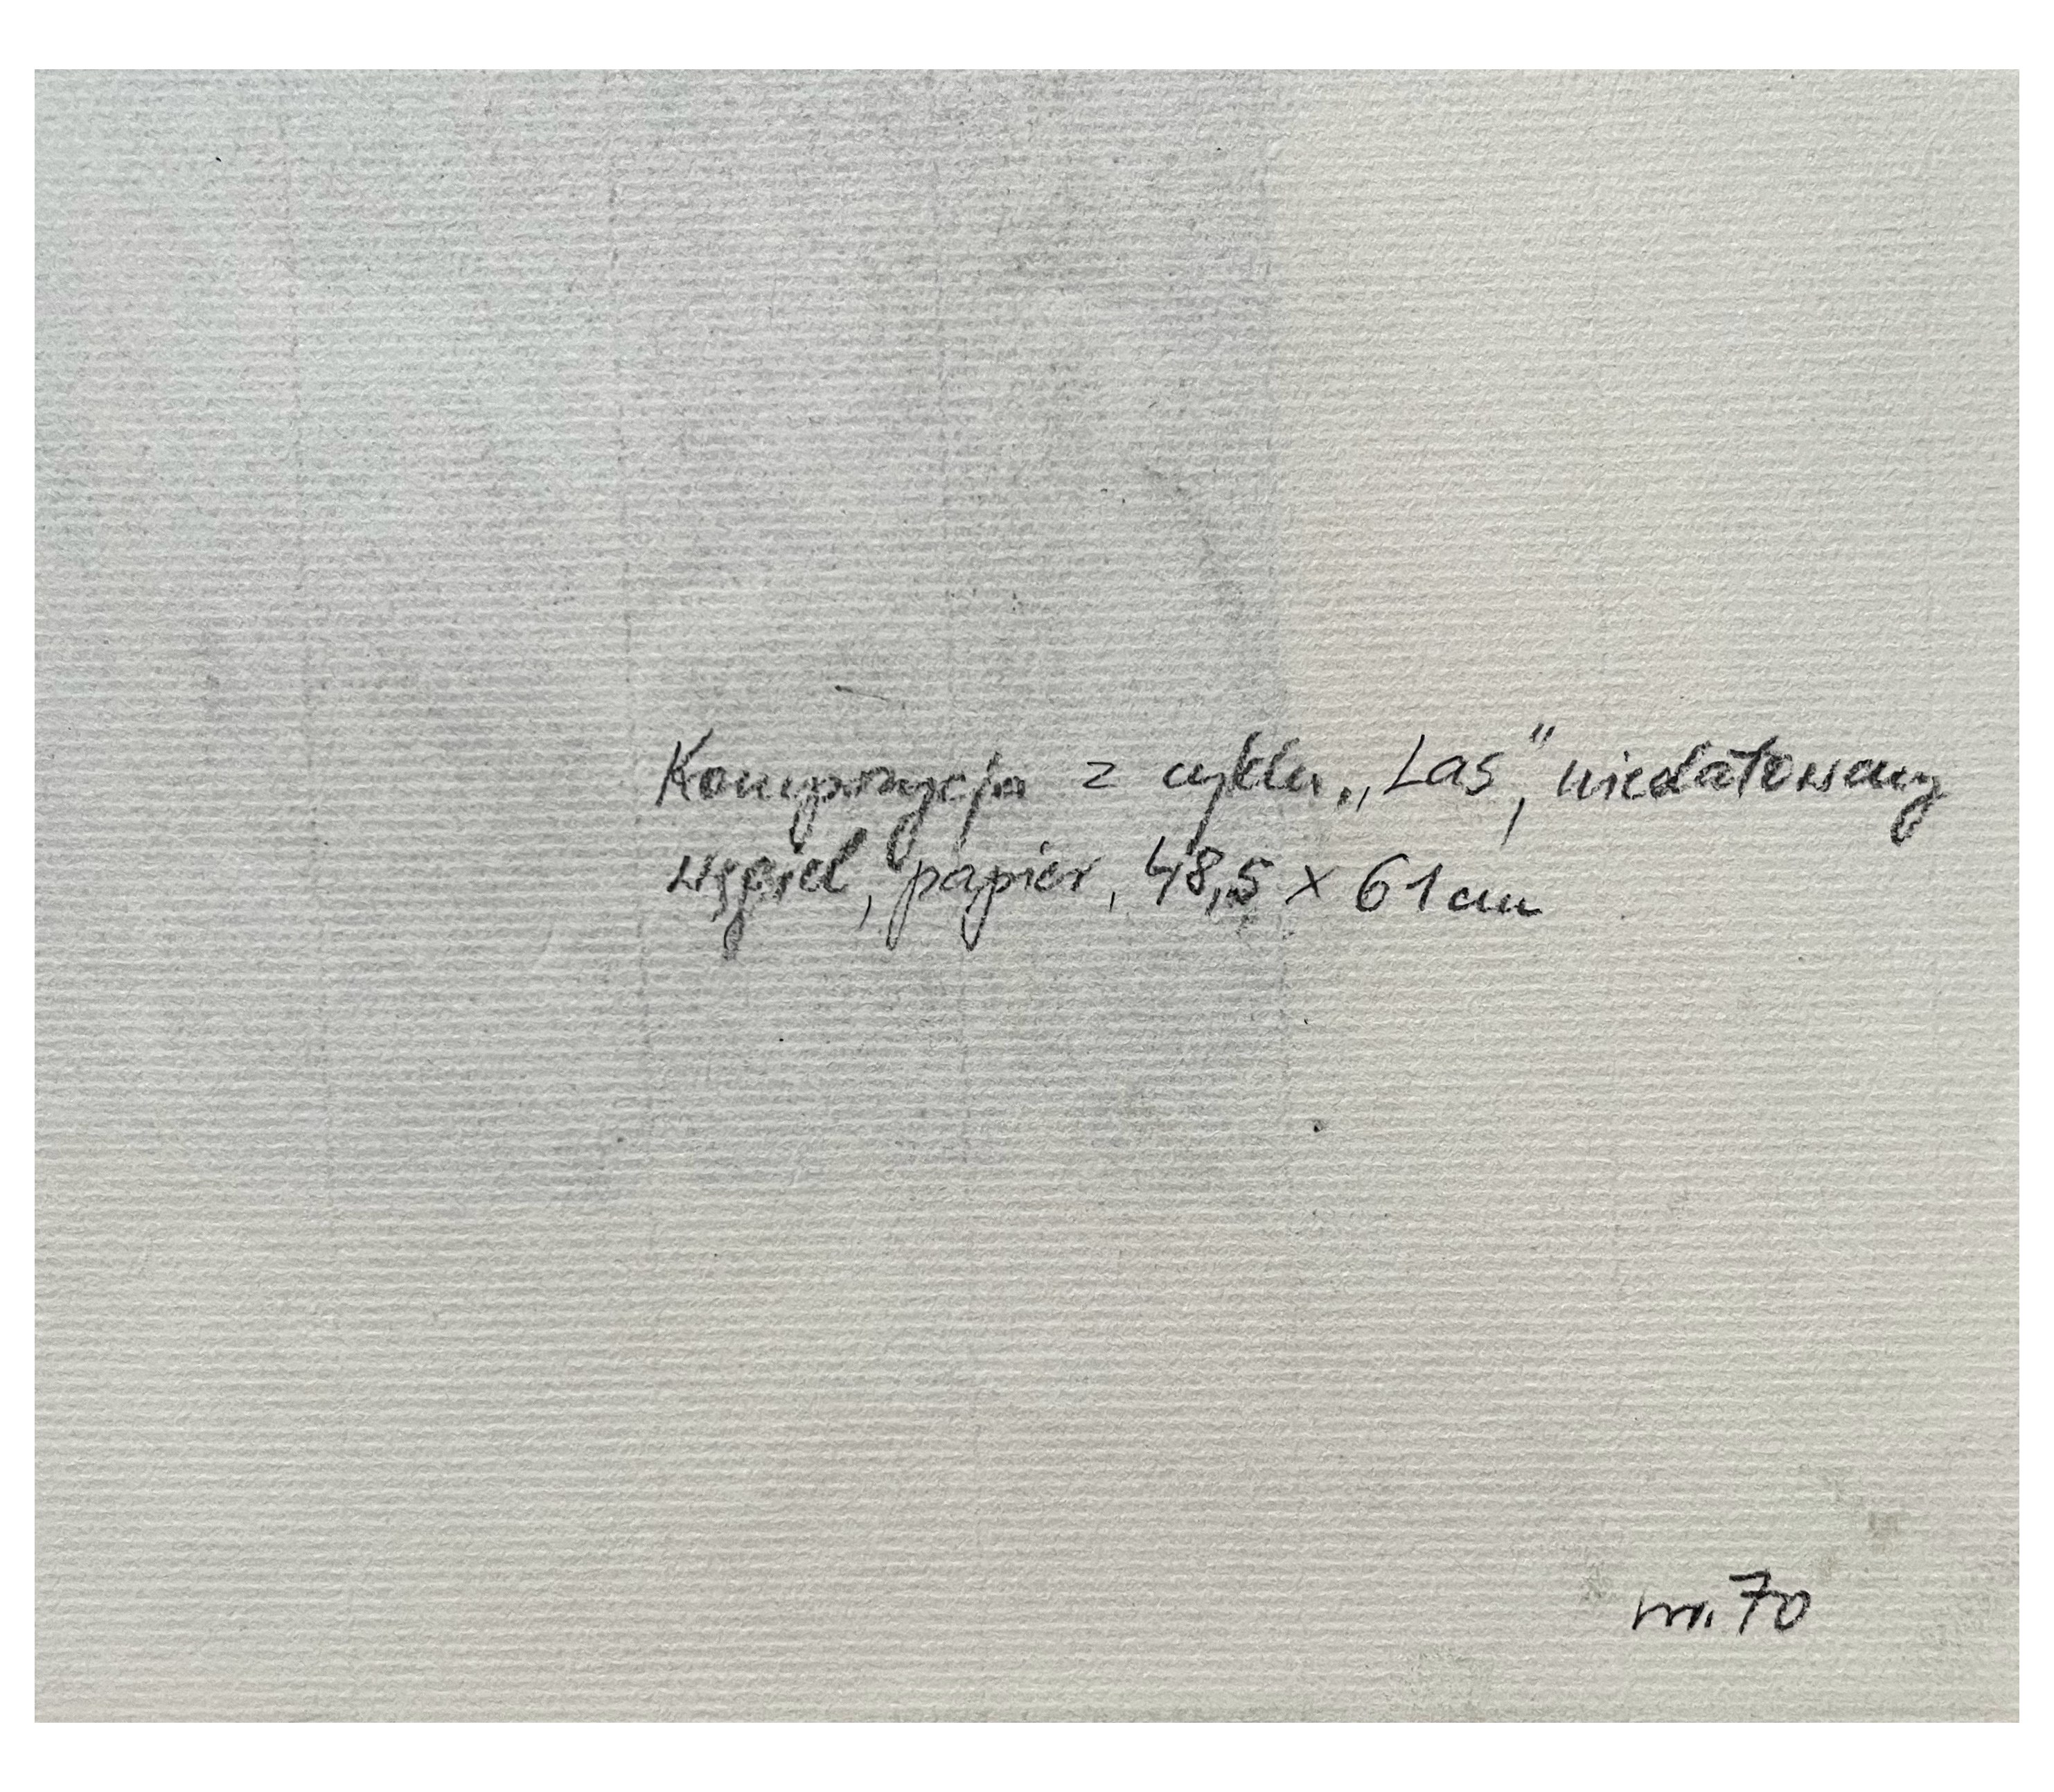 Kompozycja z cyklu „Las”, niedatowany
węgiel, papier, 48,5 x 61 cm
nr. 70